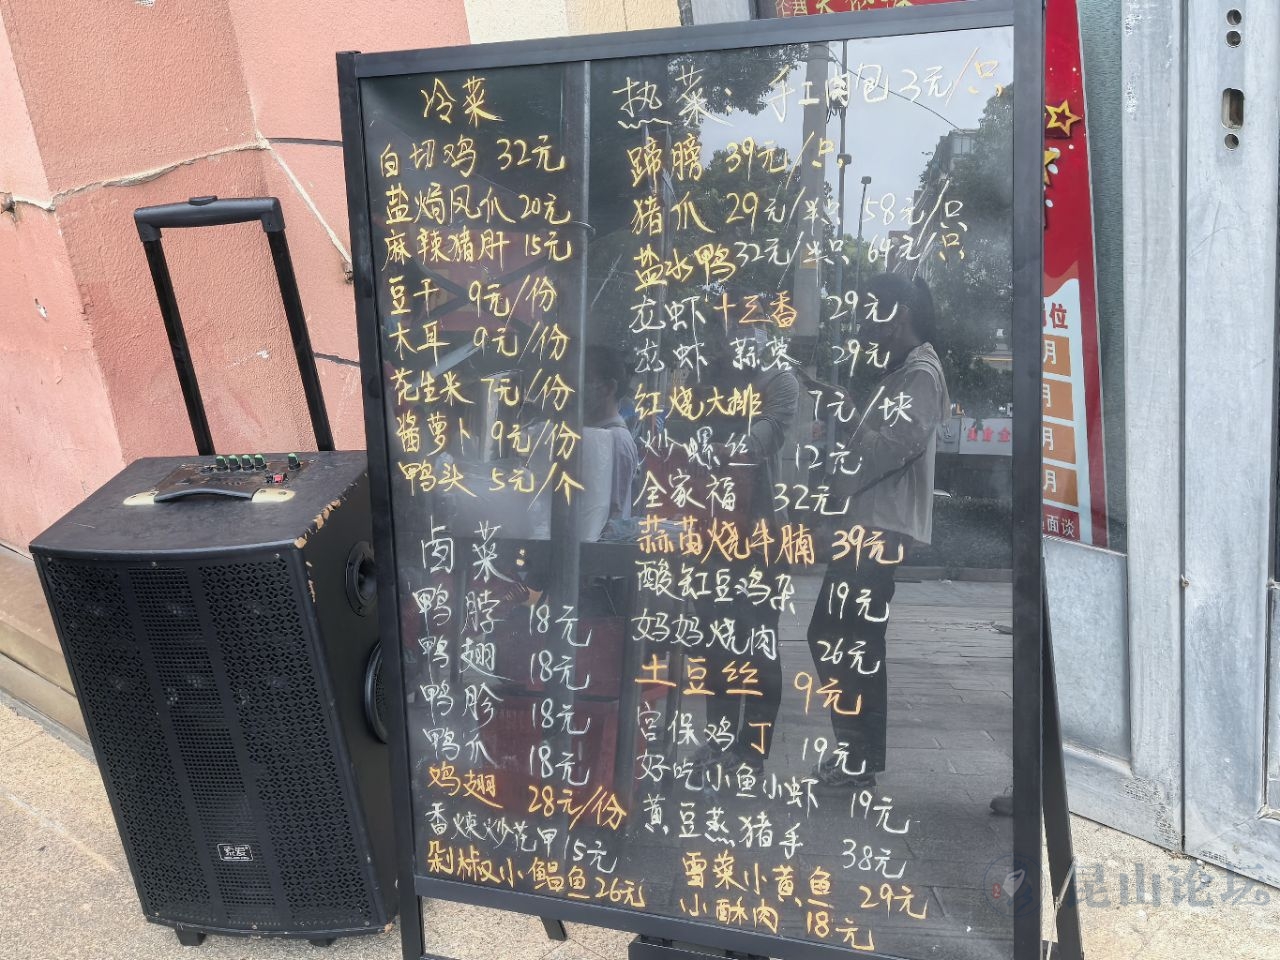 冷菜
白切鸡 32元
盐焗凤爪 20元
麻辣猪肝 15元
豆干 9元/份
木耳 9元/份
花生米 7元/份
酱萝卜 9元/份
鸭头 5元/个
卤菜:
鸭脖 18元
鸭翅 18元
鸭胗 18元
鸭爪 18元
鸡翅 28元/份
香辣炒花甲 15元
剁椒小鲳鱼 26元
热菜: 手工肉包 3元/只
蹄膀 39元/只
猪爪 29元/半只 58元/只
盐水鸭 32元/半只 64元/只
龙虾十三香 29元
龙虾 蒜蓉 29元
红烧大排 7元/块
炒螺丝 12元
全家福 32元
蒜苗烧牛腩 39元
酸缸豆鸡杂 19元
妈妈烧肉 26元
土豆丝 9元
宫保鸡丁 19元
好吃小鱼小虾 19元
黄豆蒸猪手 38元
雪菜小黄鱼 29元
小酥肉 18元
位
月
月
月
月
面谈
索爱
昆山论坛